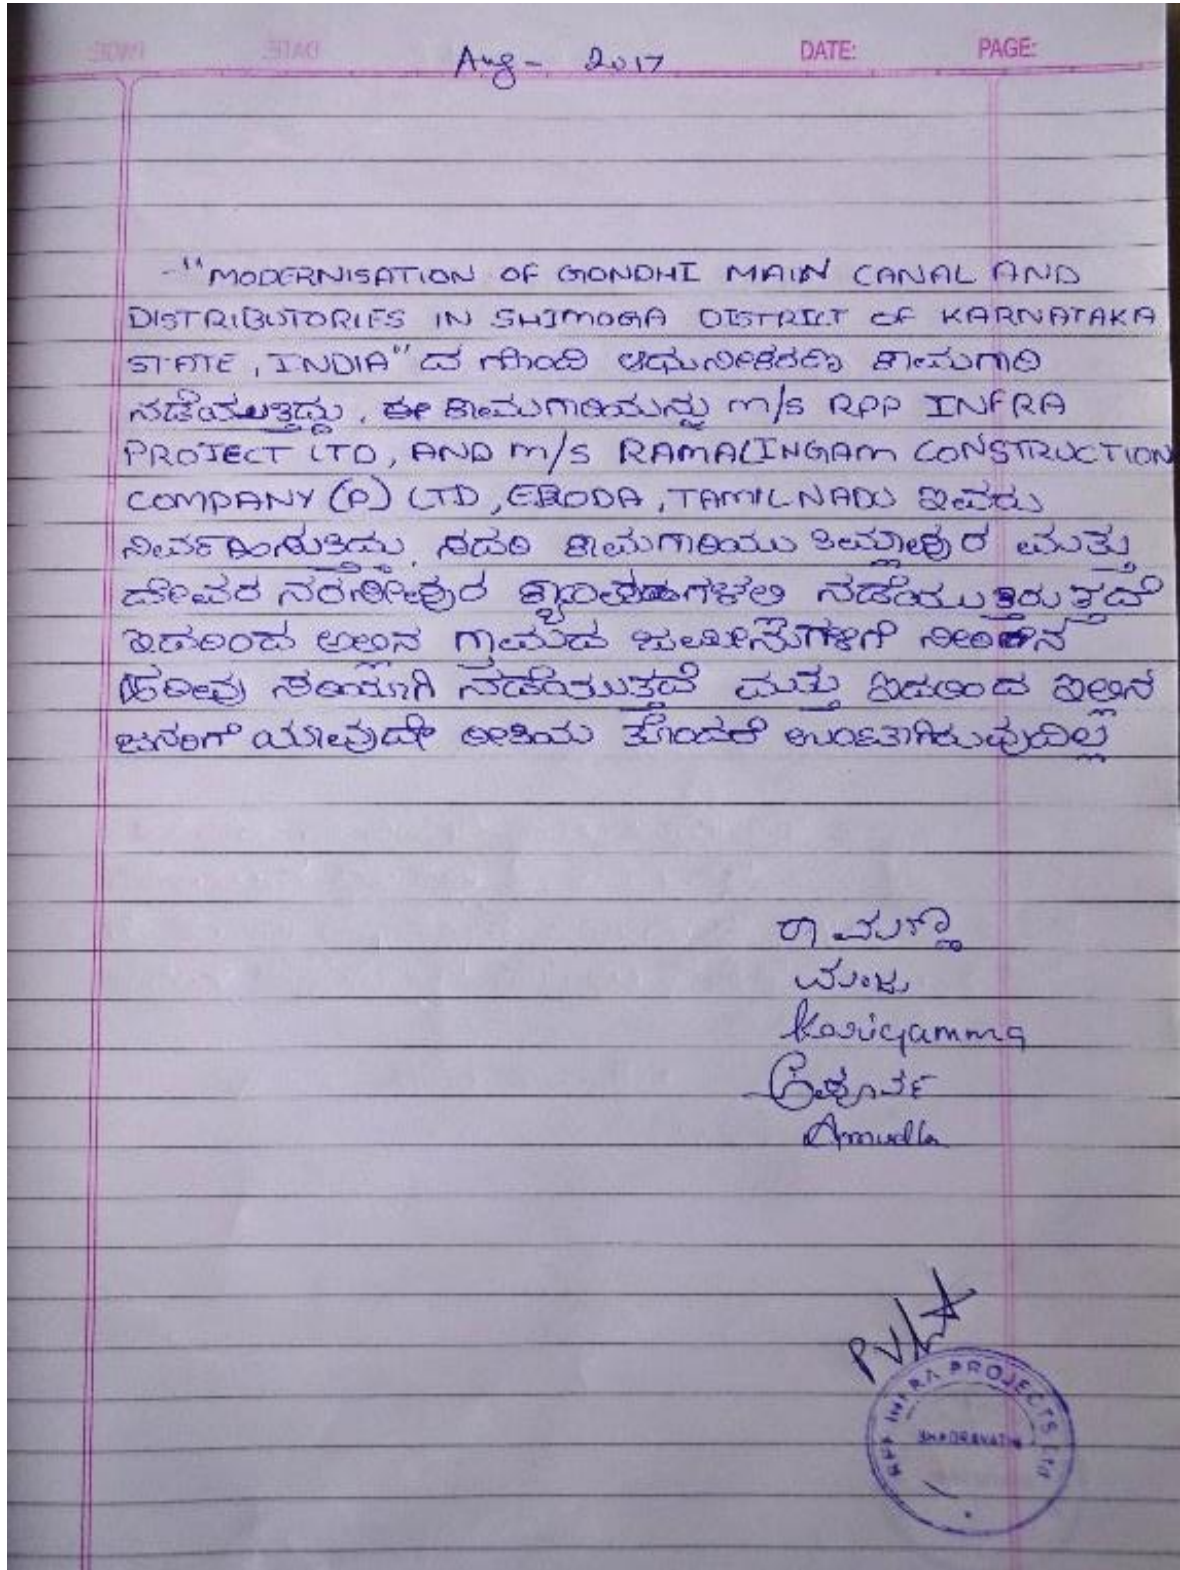 Aug - 2017 DATE: PAGE:
-"MODERNISATION OF GONDHI MAIN CANAL AND
DISTRIBUTORIES IN SHIMOGA DISTRICT OF KARNATAKA
STATE, INDIA" ದ ಗೊಂದಿ ಆಧುನೀಕರಣ ಕಾಮಗಾರಿ
ನಡೆಯುತ್ತಿದ್ದು, ಈ ಕಾಮಗಾರಿಯನ್ನು M/S RPP INFRA
PROJECT LTD, AND M/S RAMALINGAM CONSTRUCTION
COMPANY (P) LTD, ERODA, TAMILNADU ಇವರು
ನಿರ್ವಹಿಸುತ್ತಿದ್ದು, ಸದರಿ ಕಾಮಗಾರಿಯು ತಿಮ್ಲಾಪುರ ಮತ್ತು
ದೇವರ ನರಸೀಪುರ ನಡೆಯುತ್ತಿರುತ್ತದೆ
ಇದರಿಂದ ಅಲ್ಲಿನ ಗ್ರಾಮದ ಜಮೀನುಗಳಿಗೆ ನೀರಿನ
ಹರಿವು ಸರಿಯಾಗಿ ನಡೆಯುತ್ತದೆ ಮತ್ತು ಇದರಿಂದ ಇಲ್ಲಿನ
ಜನರಿಗೆ ಯಾವುದೇ ರೀತಿಯ ತೊಂದರೆ ಉಂಟಾಗಿರುವುದಿಲ್ಲ
ಮಂಜು
ಅಪೂರ್ವ
Amudha
RPP INFRA PROJECTS Ltd
BHADRAVATHI